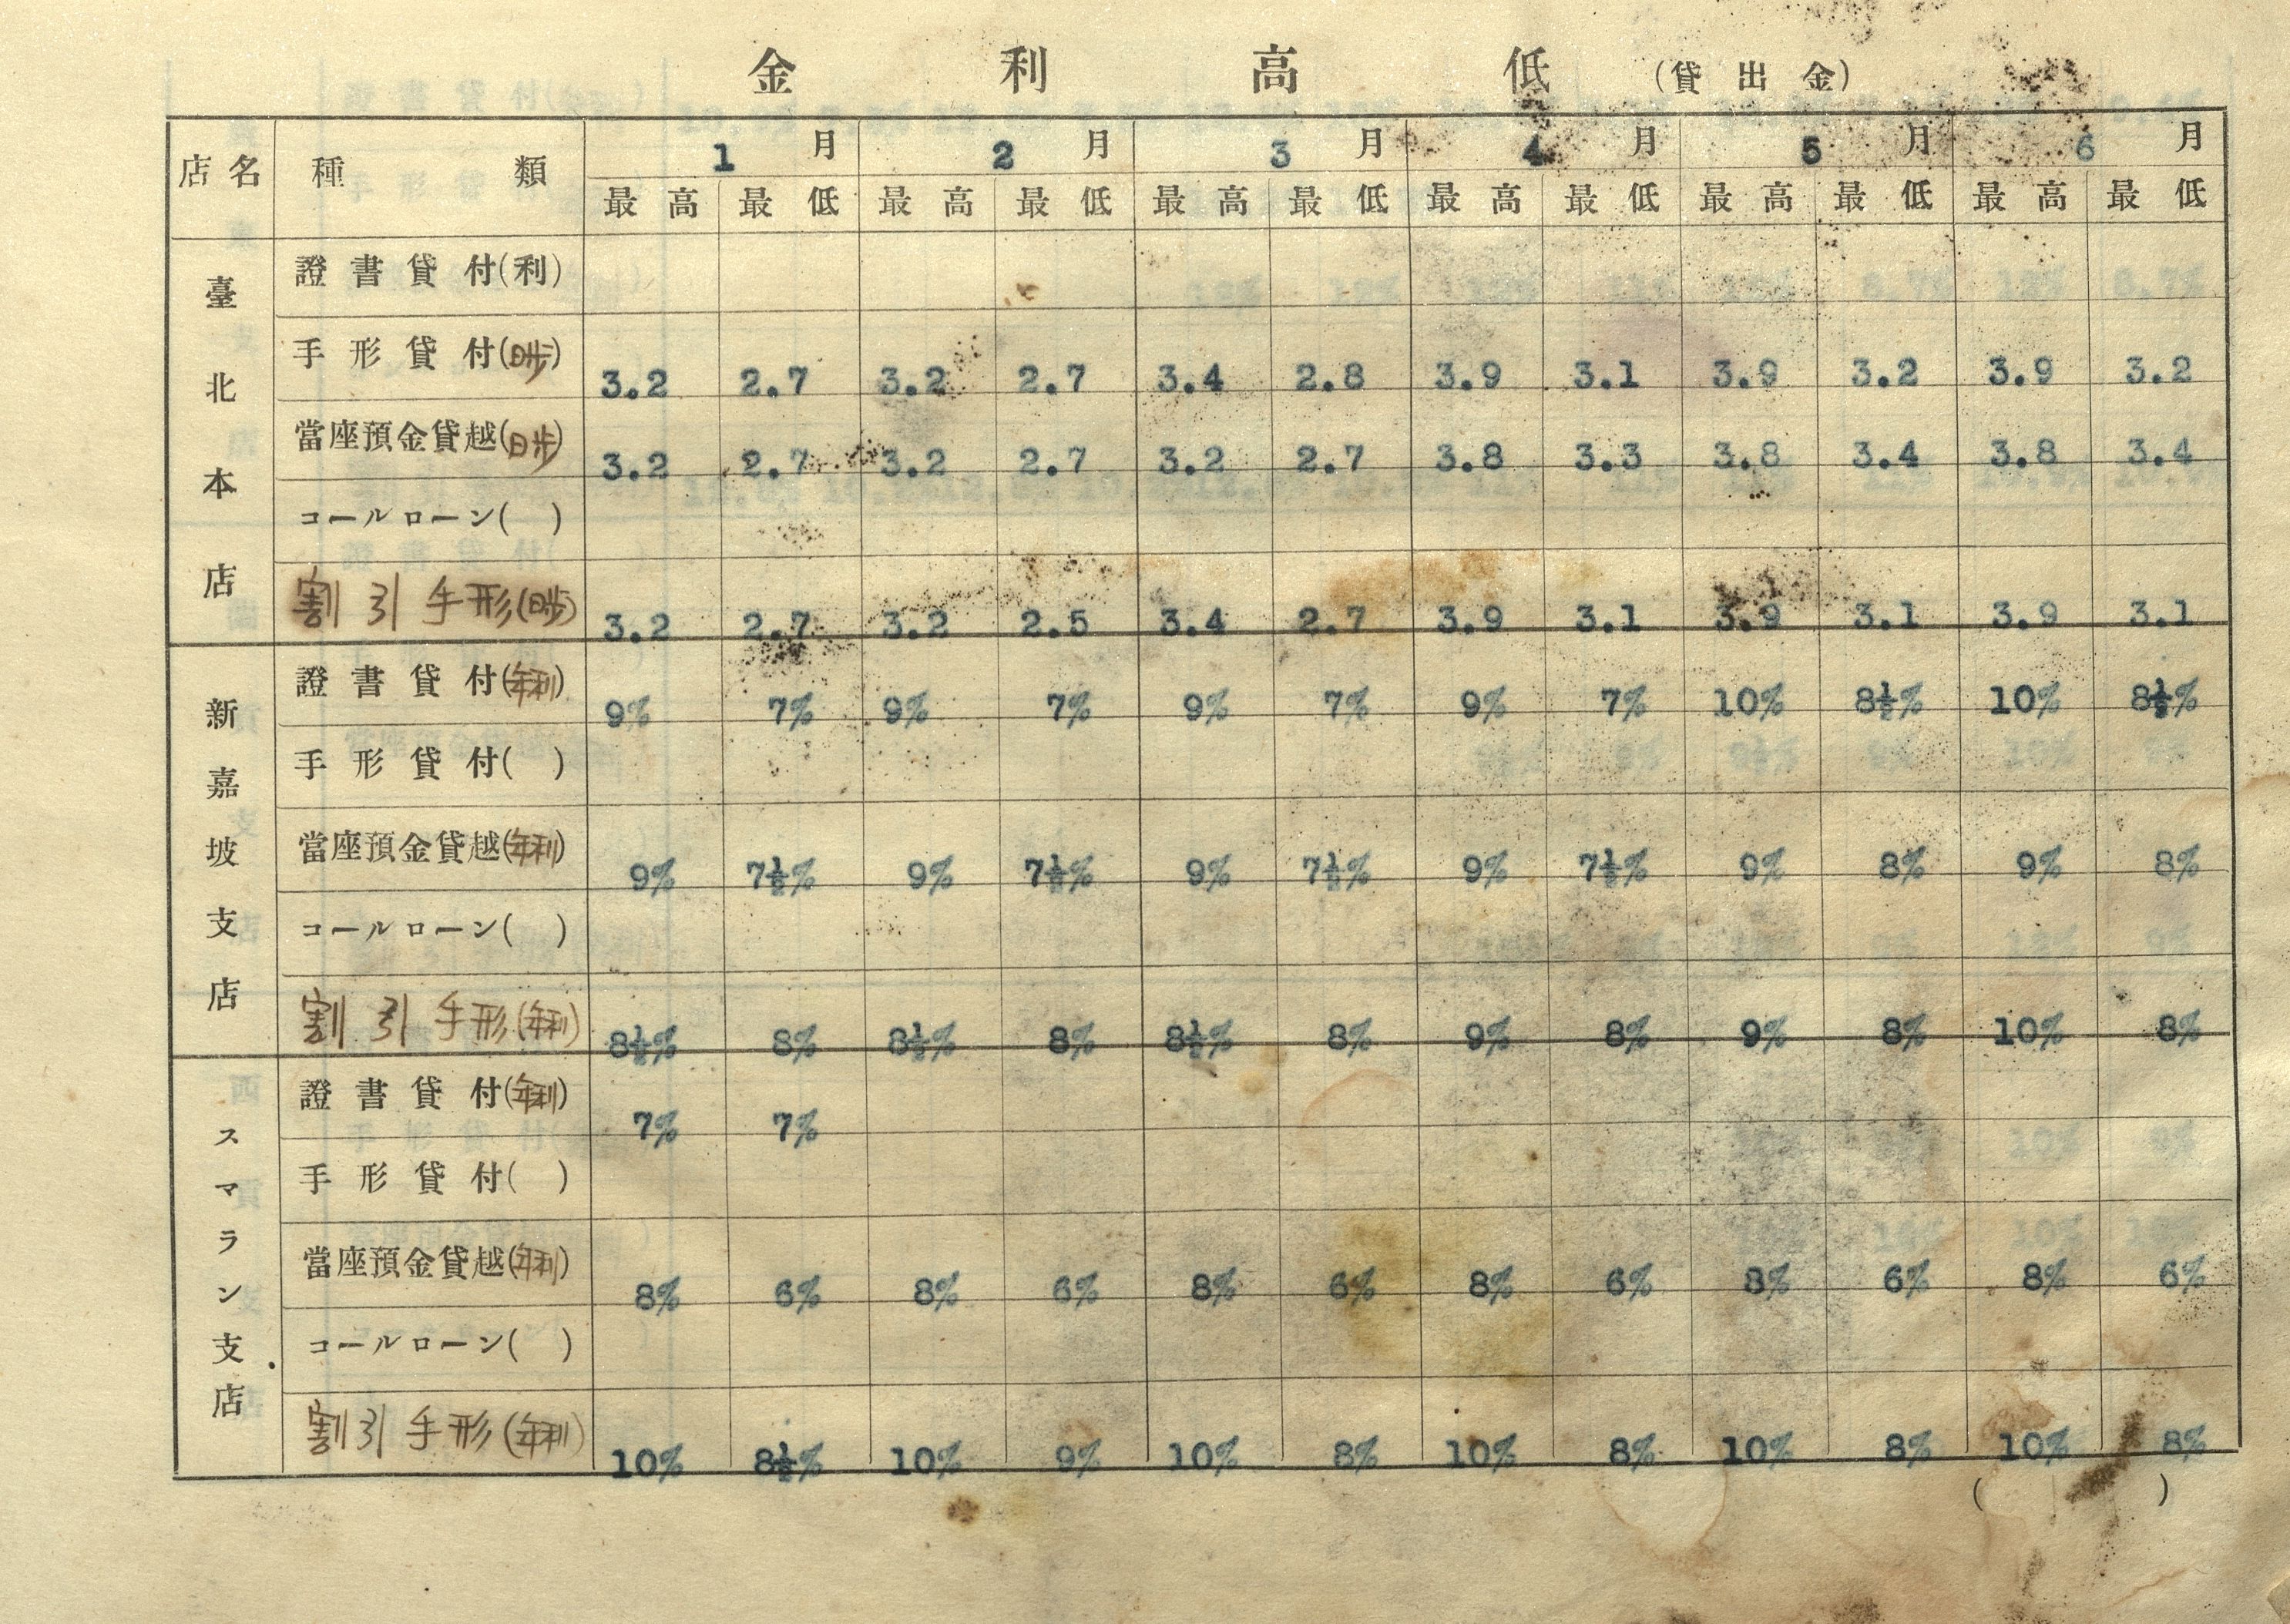 金利高低(貸出金)
店名 種類 1月 2月 3月 4月 5月 6月
最高 最低 最高 最低 最高 最低 最高 最低 最高 最低 最高 最低
臺北本店
證書貸付(利)
手形貸付(日歩) 3.2 2.7 3.2 2.7 3.4 2.8 3.9 3.1 3.9 3.2 3.9 3.2
當座預金貸越(日歩) 3.2 2.7 3.2 2.7 3.2 2.7 3.8 3.3 3.8 3.4 3.8 3.4
コールローン( )
割引手形(日歩) 3.2 2.7 3.2 2.5 3.4 2.7 3.9 3.1 3.9 3.1 3.9 3.1
新嘉坡支店
證書貸付(年利) 9% 7% 9% 7% 9% 7% 9% 7% 10% 8½% 10% 8½%
手形貸付( )
當座預金貸越(年利) 9% 7½% 9% 7½% 9% 7½% 9% 7½% 9% 8% 9% 8%
コールローン( )
割引手形(年利) 8½% 8% 8½% 8% 8½% 8% 9% 8% 9% 8% 10% 8%
スマラン支店
證書貸付(年利) 7% 7%
手形貸付( )
當座預金貸越(年利) 8% 6% 8% 6% 8% 6% 8% 6% 8% 6% 8% 6%
コールローン( )
割引手形(年利) 10% 8½% 10% 9% 10% 8% 10% 8% 10% 8% 10% 8%
( )